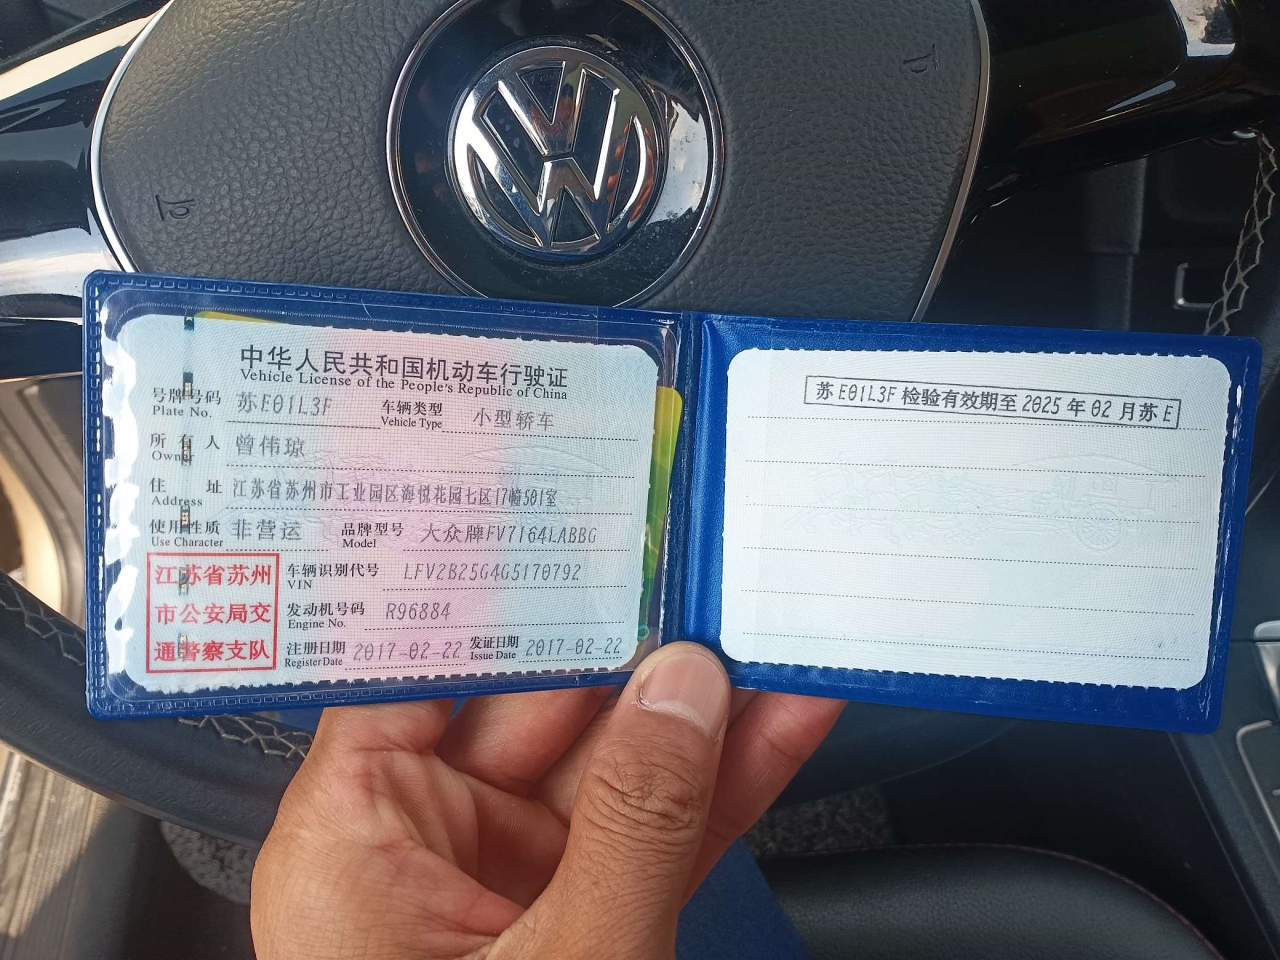 中华人民共和国机动车行驶证
Vehicle License of the People's Republic of China
号牌号码 苏E01L3F 车辆类型 小型轿车
Plate No. Vehicle Type
所有人 曾伟琼
Owner
住址 江苏省苏州市工业园区海悦花园七区17幢501室
Address
使用性质 非营运 品牌型号 大众牌FV7164LABBG
Use Character Model
江苏省苏州
市公安局交
通警察支队
车辆识别代号 LFV2B25G4G5170792
VIN
发动机号码 R96884
Engine No.
注册日期 2017-02-22 发证日期 2017-02-22
Register Date Issue Date
苏E01L3F 检验有效期至 2025 年 02 月苏 E